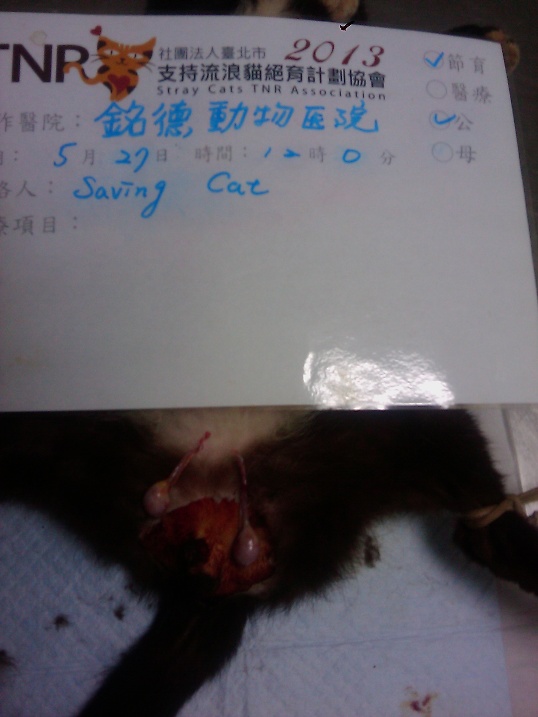 TNR 社團法人臺北市 2013
支持流浪貓絕育計劃協會
Stray Cats TNR Association
作醫院：銘德動物医院
5月27日 時間：12時0分
絡人：Saving Cat
療項目：
節育
醫療
公
母